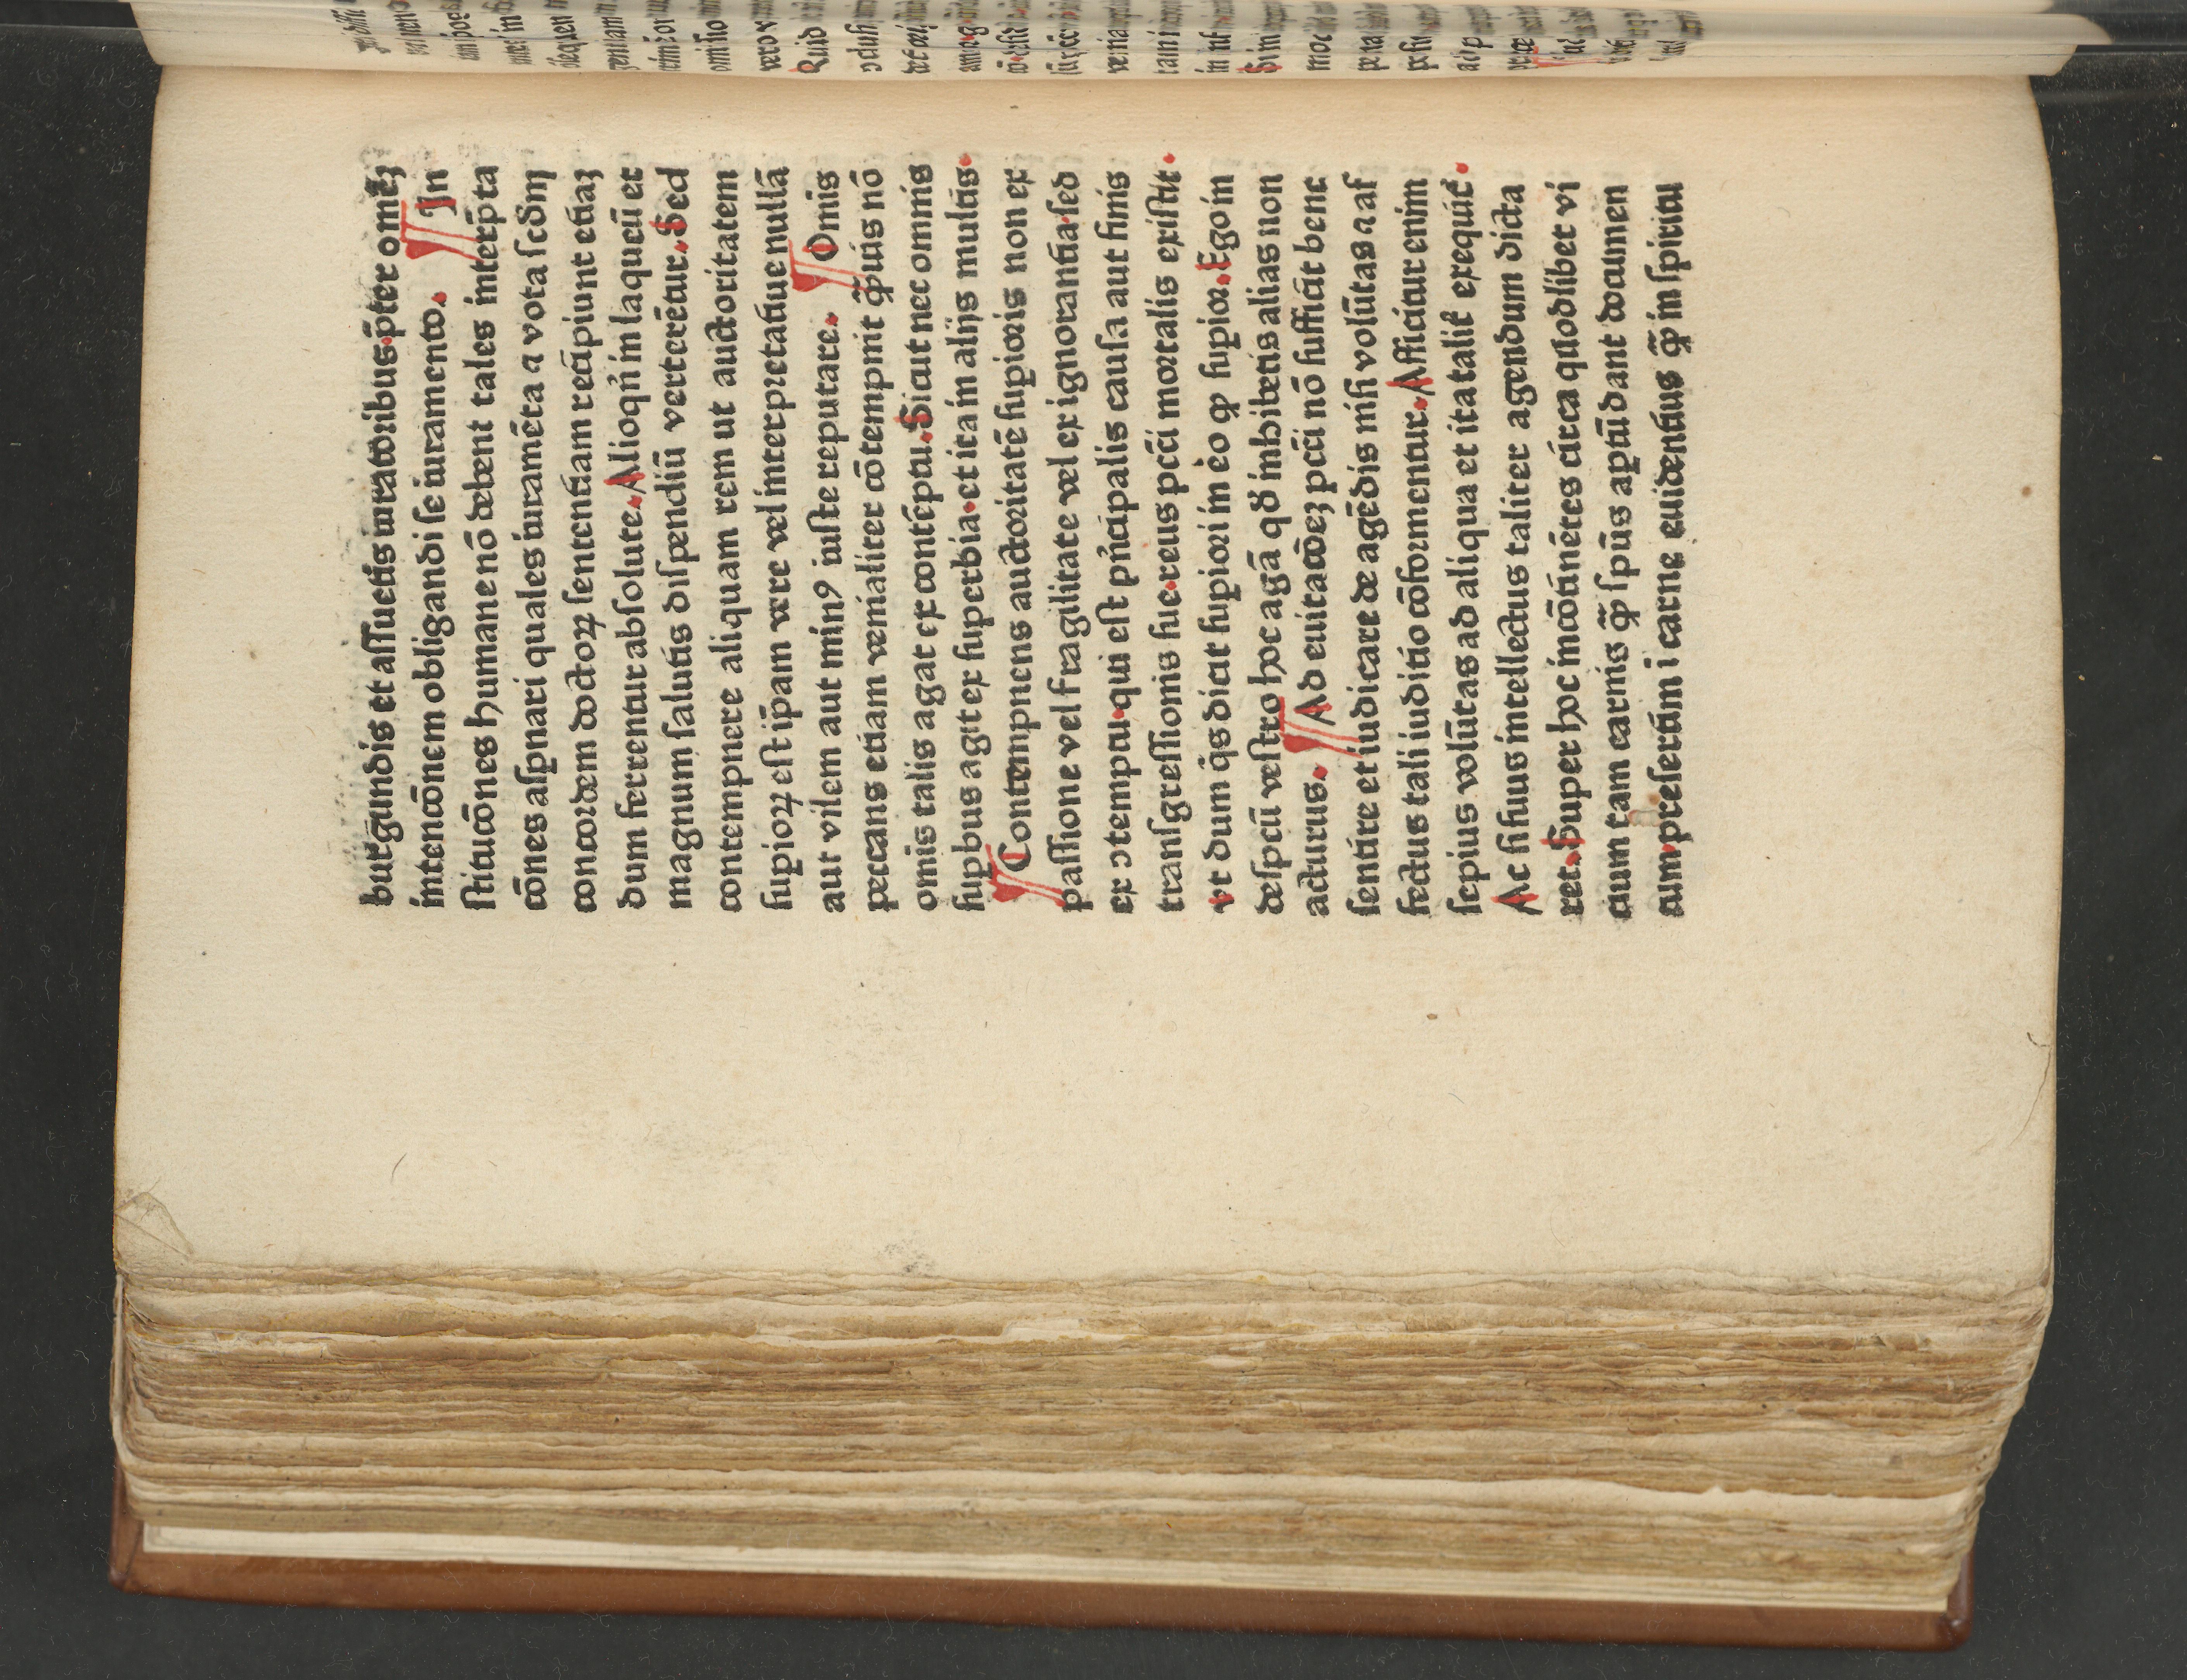 burgundis et assuetis iuratoribus·p̄ter omēz
intencōnem obligandi se iuramento. ¶ In
stitucōnes humane nō debent tales interp̄ta
cōnes aspnari quales iuramēta ⁊ vota scdm
concordem doctoꝝ sententiam recipiunt etiaꝫ
dum ferrentur absolute. Alioqn̄ in laqueū et
magnum salutis dispendiū verterētur. Sed
contempnere aliquam rem ut auctoritatem
supioꝝ est ip̄am vere vel interpretatiue nullā
aut vilem aut minꝰ iuste reputare. ¶ Omis
peccans etiam venialiter cōtempnit qͣuis nō
omīs talis agat ex contēptu. Sicut nec omnis
supbus agit ex superbia·et ita in alijs multis·
¶ Contempnens auctoritatē superioris non ex
passione vel fragilitate vel ex ignorantia·sed
ex ↄtemptu·qui est pn̄cipalis causa aut finis
transgressionis sue·reus pcc̄i mortalis existit·
vt dum q̄s dicit supiori in eo qꝫ supior. Ego in
despcū vestro hoc agā qd̓ inhibetis alias non
acturus. ¶ Ad euitacōeꝫ pcc̄i nō sufficit bene
sentire et iudicare de agēdis nisi volūtas ⁊ af
fectus tali iuditio cōformentur. Afficitur enim
sepius volūtas ad aliqua et ita talit̓ exequit̓·
Ac si suus intellectus taliter agendum dicta
ret. Super hoc incōtinētes circa quodlibet vi
cium tam carnis qͣ̄ spūs aptū dant documen
tum·presertim ī carne euidentius qͣ̄ in spiritu